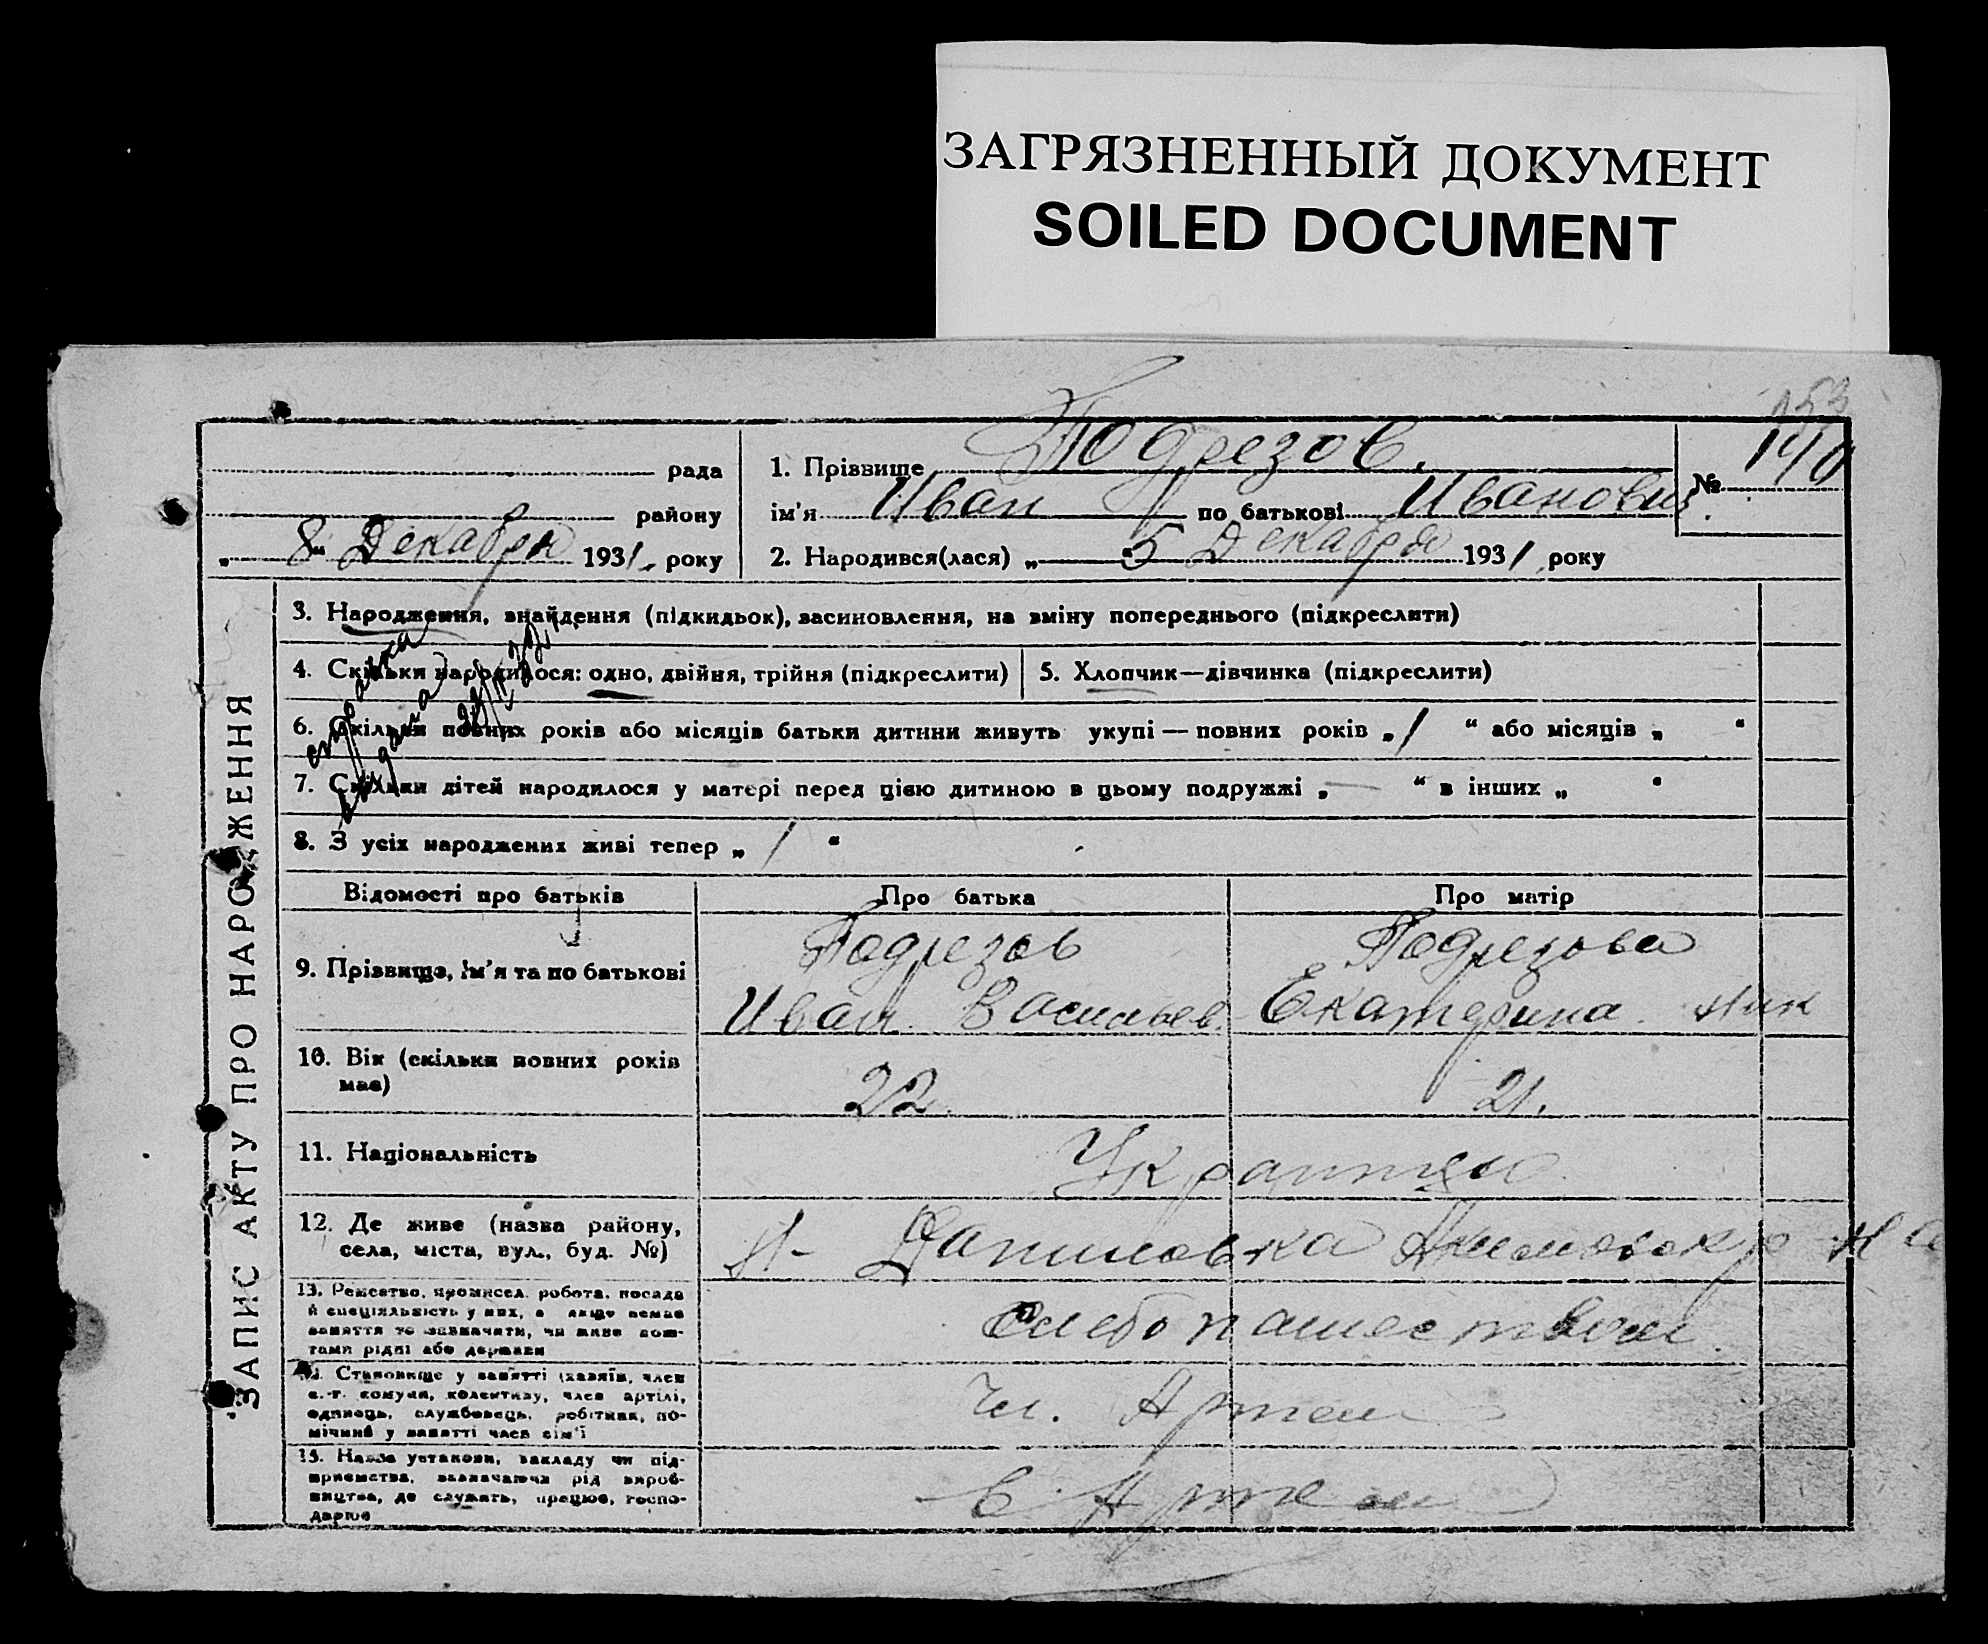 ЗАГРЯЗНЕННЫЙ ДОКУМЕНТ
SOILED DOCUMENT
153
рада
району
„ 8 “ Декабря 1931. року
1. Прізвище Подрезов.
ім'я Иван по батькові Иванович
2. Народився(лася) „ 5 Декабря 1931 року
№ 140
ЗАПИС АКТУ ПРО НАРОДЖЕННЯ
3. Народження, знайдення (підкидьок), засиновлення, на зміну попереднього (підкреслити)
справка
выдана
4. Скільки народилося: одно, двійня, трійня (підкреслити)
5. Хлопчик—дівчинка (підкреслити)
6. Скільки повних років або місяців батьки дитини живуть укупі — повних років „ 1 “ або місяців „ “
7. Скільки дітей народилося у матері перед цією дитиною в цьому подружжі „ — “ в інших „ “
8. З усіх народжених живі тепер „ 1 “
Відомості про батьків
Про батька
Про матір
9. Прізвище, ім'я та по батькові
Подрезов
Иван Васильев.
Подрезова
Екатерина Ник
10. Вік (скільки повних років має)
22.
21.
11. Національність
Украинцы
12. Де живе (назва району, села, міста, вул., буд. №)
Н- Даниловка Акимовск р-на
13. Ремество, промисел, робота, посада й спеціяльність у них, а якщо немає заняття то зазначити, чи живе коштами рідні або держави
Хлебопашеством
14. Становище у занятті (хазяїн, член с.-г. комуни, колективу, член артілі, одинець, службовець, робітник, помічний у занятті член сім'ї
Чл. Артели
15. Назва установи, закладу чи підприємства, зазначаючи рід виробництва, де служать, працює, господарює
в Артели